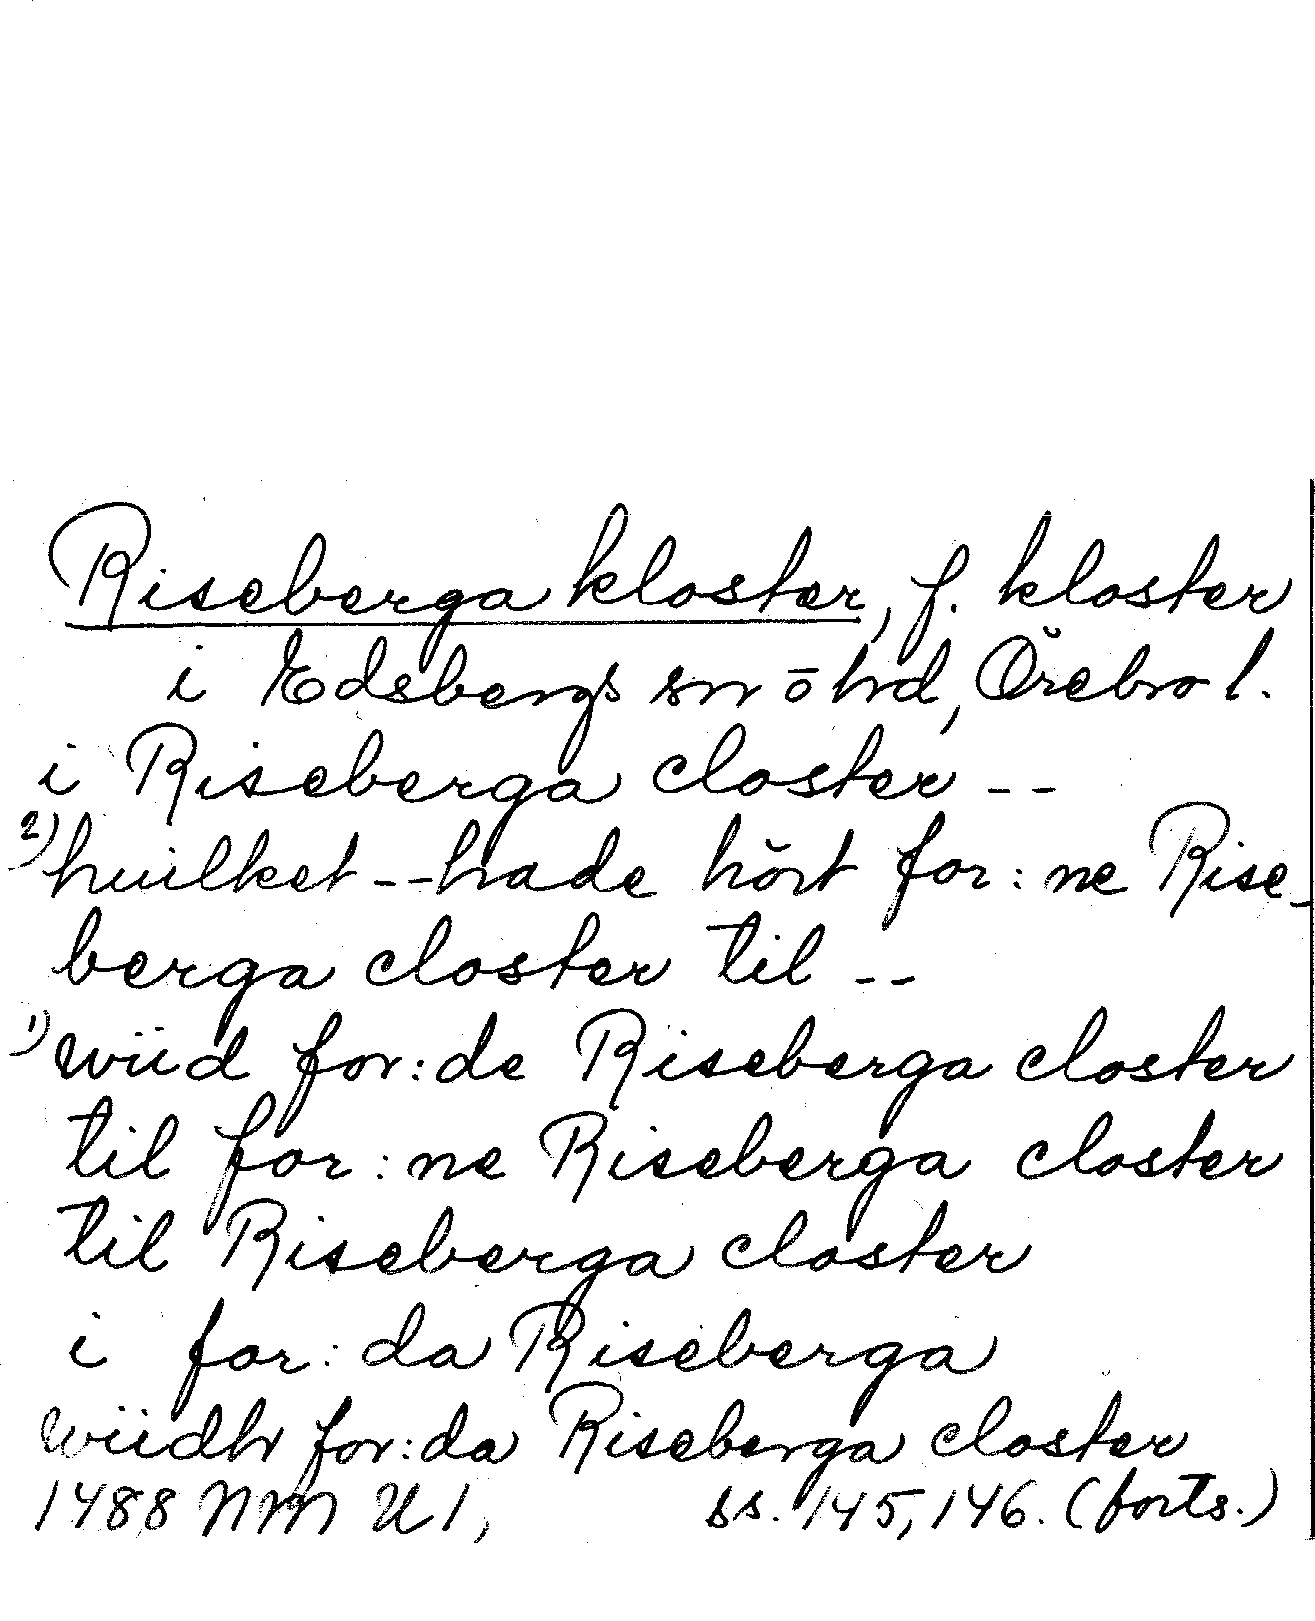 Riseberga kloster, f. kloster
i Edsbergs sn o hd, Örebro l.
i Riseberga closter --
2) huilket -- hade hört for:ne Rise-
berga closter til --
1) wiid for:de Riseberga closter
til for:ne Riseberga closter
til Riseberga closter
i for:da Riseberga
wiidh for:da Riseberga closter
1488 NM U1, ss. 145, 146. (forts.)